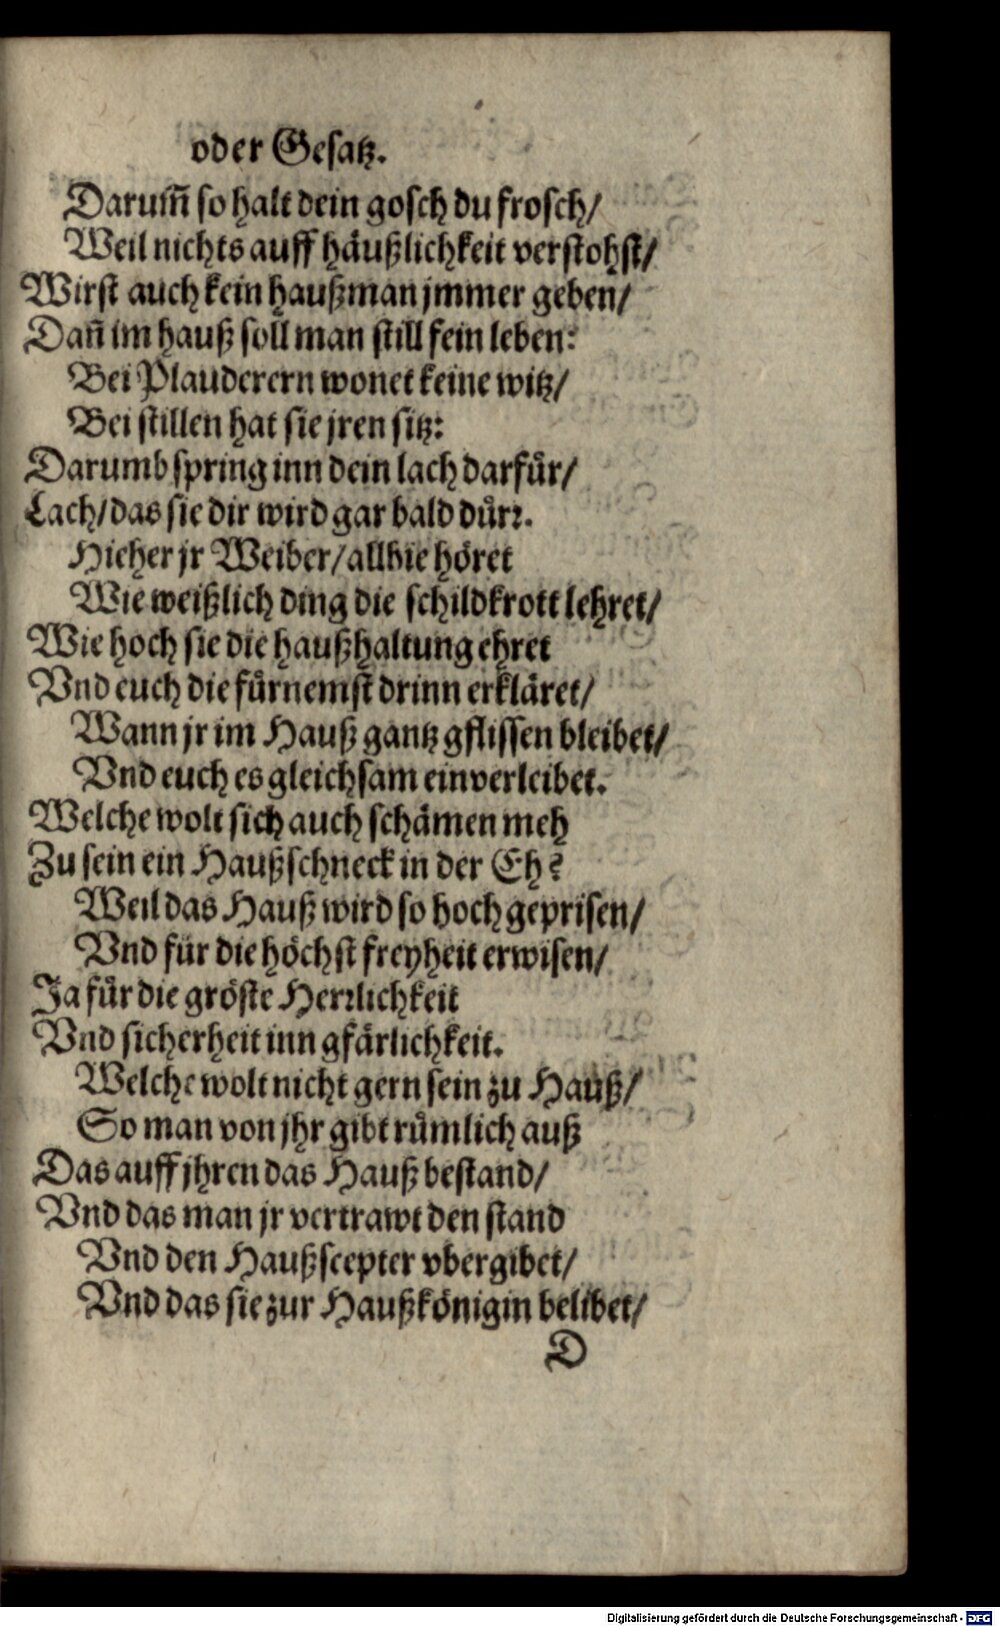 oder Gesatz.
Darum̃ so halt dein gosch du frosch/
Weil nichts auff häußlichkeit verstohst/
Wirst auch kein haußman jmmer geben/
Dañ im hauß soll man still fein leben:
Bei Plauderern wonet keine witz/
Bei stillen hat sie jren sitz:
Darumb spring inn dein lach darfůr/
Lach/das sie dir wird gar bald důrr.
Hieher jr Weiber/allhie höret
Wie weißlich ding die schildkrott lehret/
Wie hoch sie die haußhaltung ehret
Vnd euch die fůrnemst drinn erkläret/
Wann jr im Hauß gantz gflissen bleibet/
Vnd euch es gleichsam einverleibet.
Welche wolt sich auch schämen meh
Zu sein ein Haußschneck in der Eh?
Weil das Hauß wird so hoch geprisen/
Vnd für die höchst freyheit erwisen/
Ja fůr die gröste Herrlichkeit
Vnd sicherheit inn gfärlichkeit.
Welche wolt nicht gern sein zu Hauß/
So man von jhr gibt růmlich auß
Das auff jhren das Hauß bestand/
Vnd das man jr vertrawt den stand
Vnd den Haußscepter vbergibet/
Vnd das sie zur Haußkönigin belibet/
D
Digitalisierung gefördert durch die Deutsche Forschungsgemeinschaft - DFG